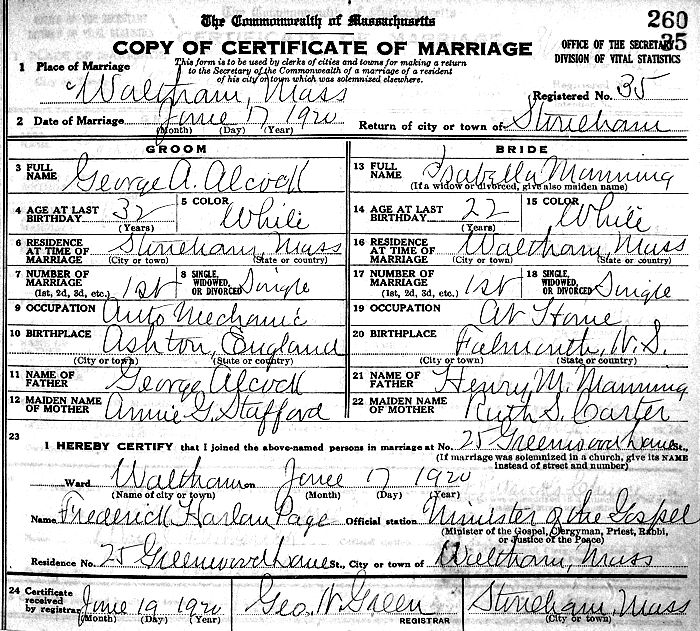 The Commonwealth of Massachusetts
260
35
COPY OF CERTIFICATE OF MARRIAGE
OFFICE OF THE SECRETARY
DIVISION OF VITAL STATISTICS
This form is to be used by clerks of cities and towns for making a return
to the Secretary of the Commonwealth of a marriage of a resident
of his city or town which was solemnized elsewhere.
1 Place of Marriage
Waltham, Mass
Registered No. 35
2 Date of Marriage June 17 1920 Return of city or town of Stoneham
(Month) (Day) (Year)
GROOM BRIDE
3 FULL NAME George A. Alcock 13 FULL NAME Isabella Manning
(If a widow or divorced, give also maiden name)
4 AGE AT LAST BIRTHDAY 32 5 COLOR White 14 AGE AT LAST BIRTHDAY 22 15 COLOR White
(Years) (Years)
6 RESIDENCE AT TIME OF MARRIAGE Stoneham, Mass 16 RESIDENCE AT TIME OF MARRIAGE Waltham, Mass
(City or town) (State or country) (City or town) (State or country)
7 NUMBER OF MARRIAGE 1st 8 SINGLE, WIDOWED, OR DIVORCED Single 17 NUMBER OF MARRIAGE 1st 18 SINGLE, WIDOWED, OR DIVORCED Single
(1st, 2d, 3d, etc.) (1st, 2d, 3d, etc.)
9 OCCUPATION Auto Mechanic 19 OCCUPATION At Home
10 BIRTHPLACE Ashton, England 20 BIRTHPLACE Falmouth, N.S.
(City or town) (State or country) (City or town) (State or country)
11 NAME OF FATHER George Alcock 21 NAME OF FATHER Henry M. Manning
12 MAIDEN NAME OF MOTHER Annie G. Stafford 22 MAIDEN NAME OF MOTHER Ruth S. Carter
23
I HEREBY CERTIFY that I joined the above-named persons in marriage at No. 25 Greenwood Lane St.,
(If marriage was solemnized in a church, give its NAME
instead of street and number)
Ward Waltham on June 17 1920
(Name of city or town) (Month) (Day) (Year)
Name Frederick Harlan Page Official station Minister of the Gospel
(Minister of the Gospel, Clergyman, Priest, Rabbi,
or Justice of the Peace)
Residence No. 25 Greenwood Lane St., City or town of Waltham, Mass
24 Certificate received by registrar June 19 1920 Geo. N. Green Stoneham, Mass
(Month) (Day) (Year) REGISTRAR (City or town)